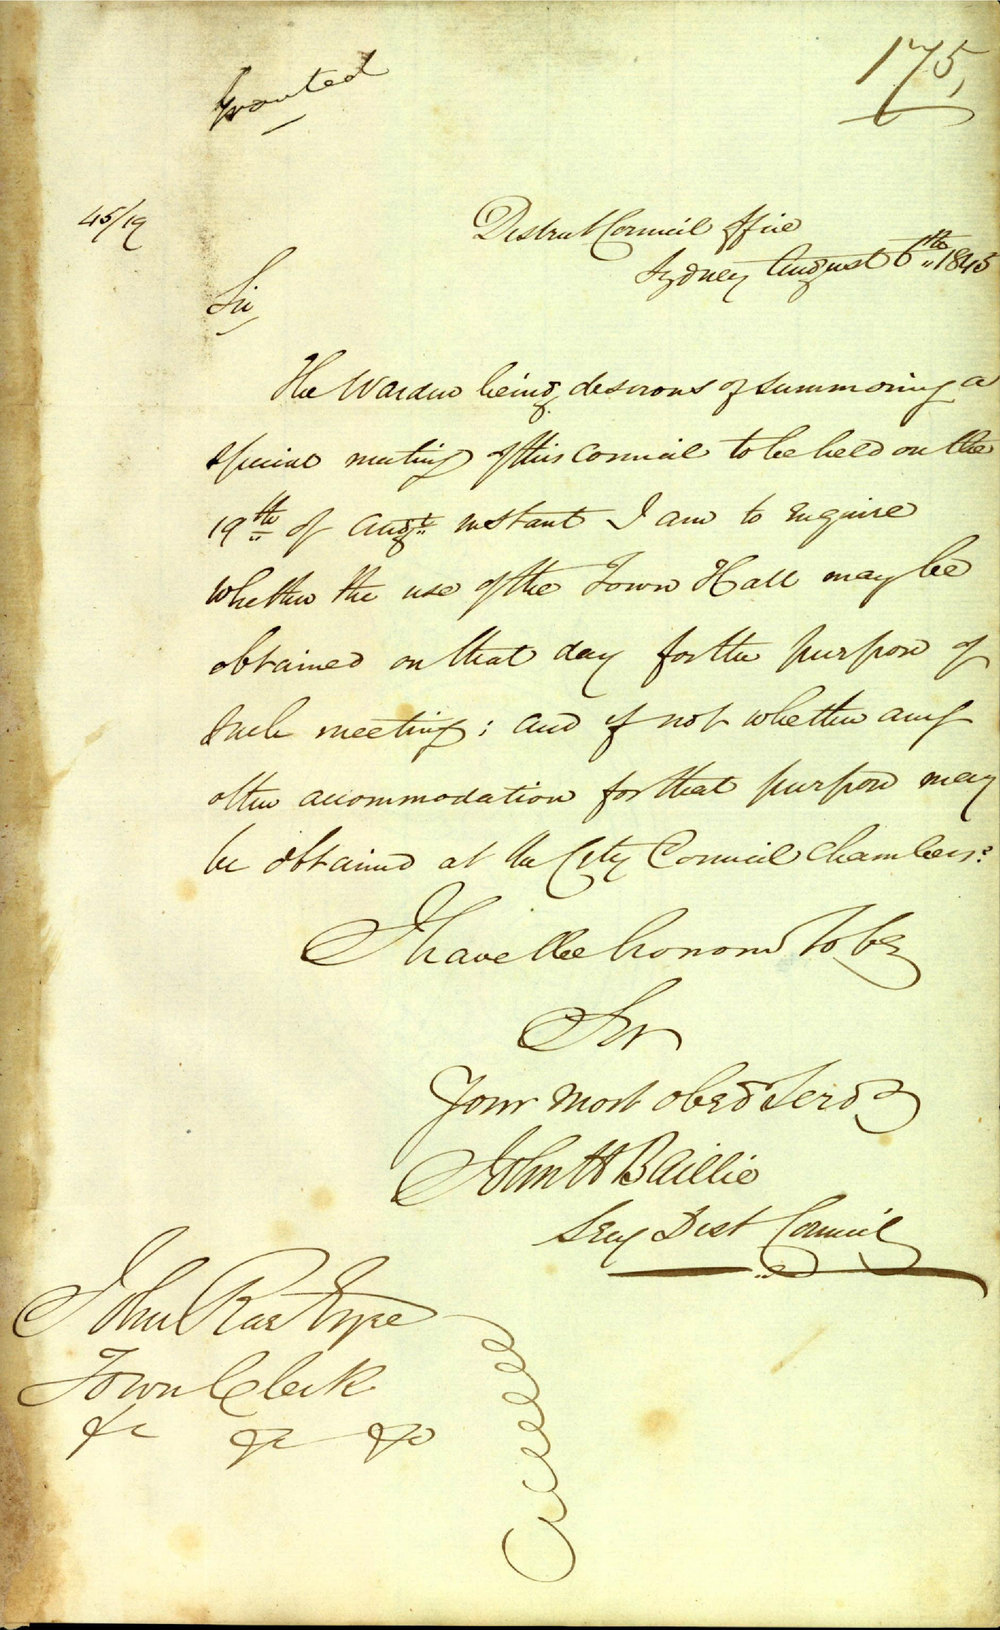 Granted
175,
45/19
District Council Office
Sydney August 6th 1845
Sir,
The Warden being desirous of summoning a
special meeting of this Council to be held on the
19th of Augt instant I am to enquire
whether the use of the Town Hall may be
obtained on that day for the purpose of
such meeting; and if not whether any
other accommodation for that purpose may
be obtained at the City Council Chambers?
I have the honor to be
Sir
Your most obed Servt
John H Baillie
Secy Dist Council
John Rae Esqre
Town Clerk
&c &c &c